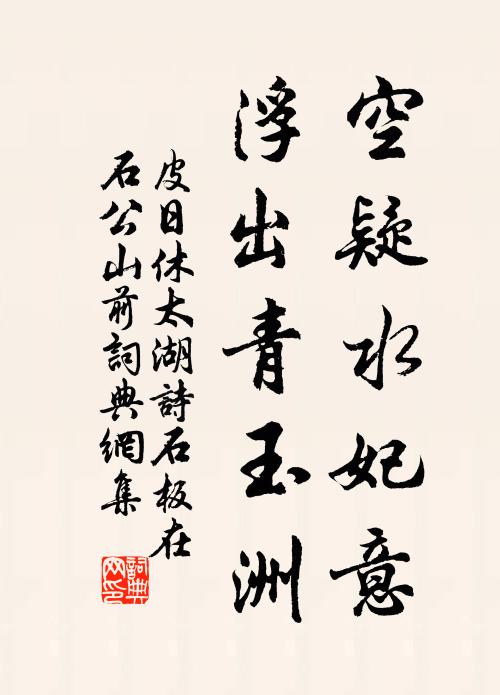 空疑水妃意
浮出青玉洲
皮日休太湖詩石板在
石公山前詞典網集
詞典
网印